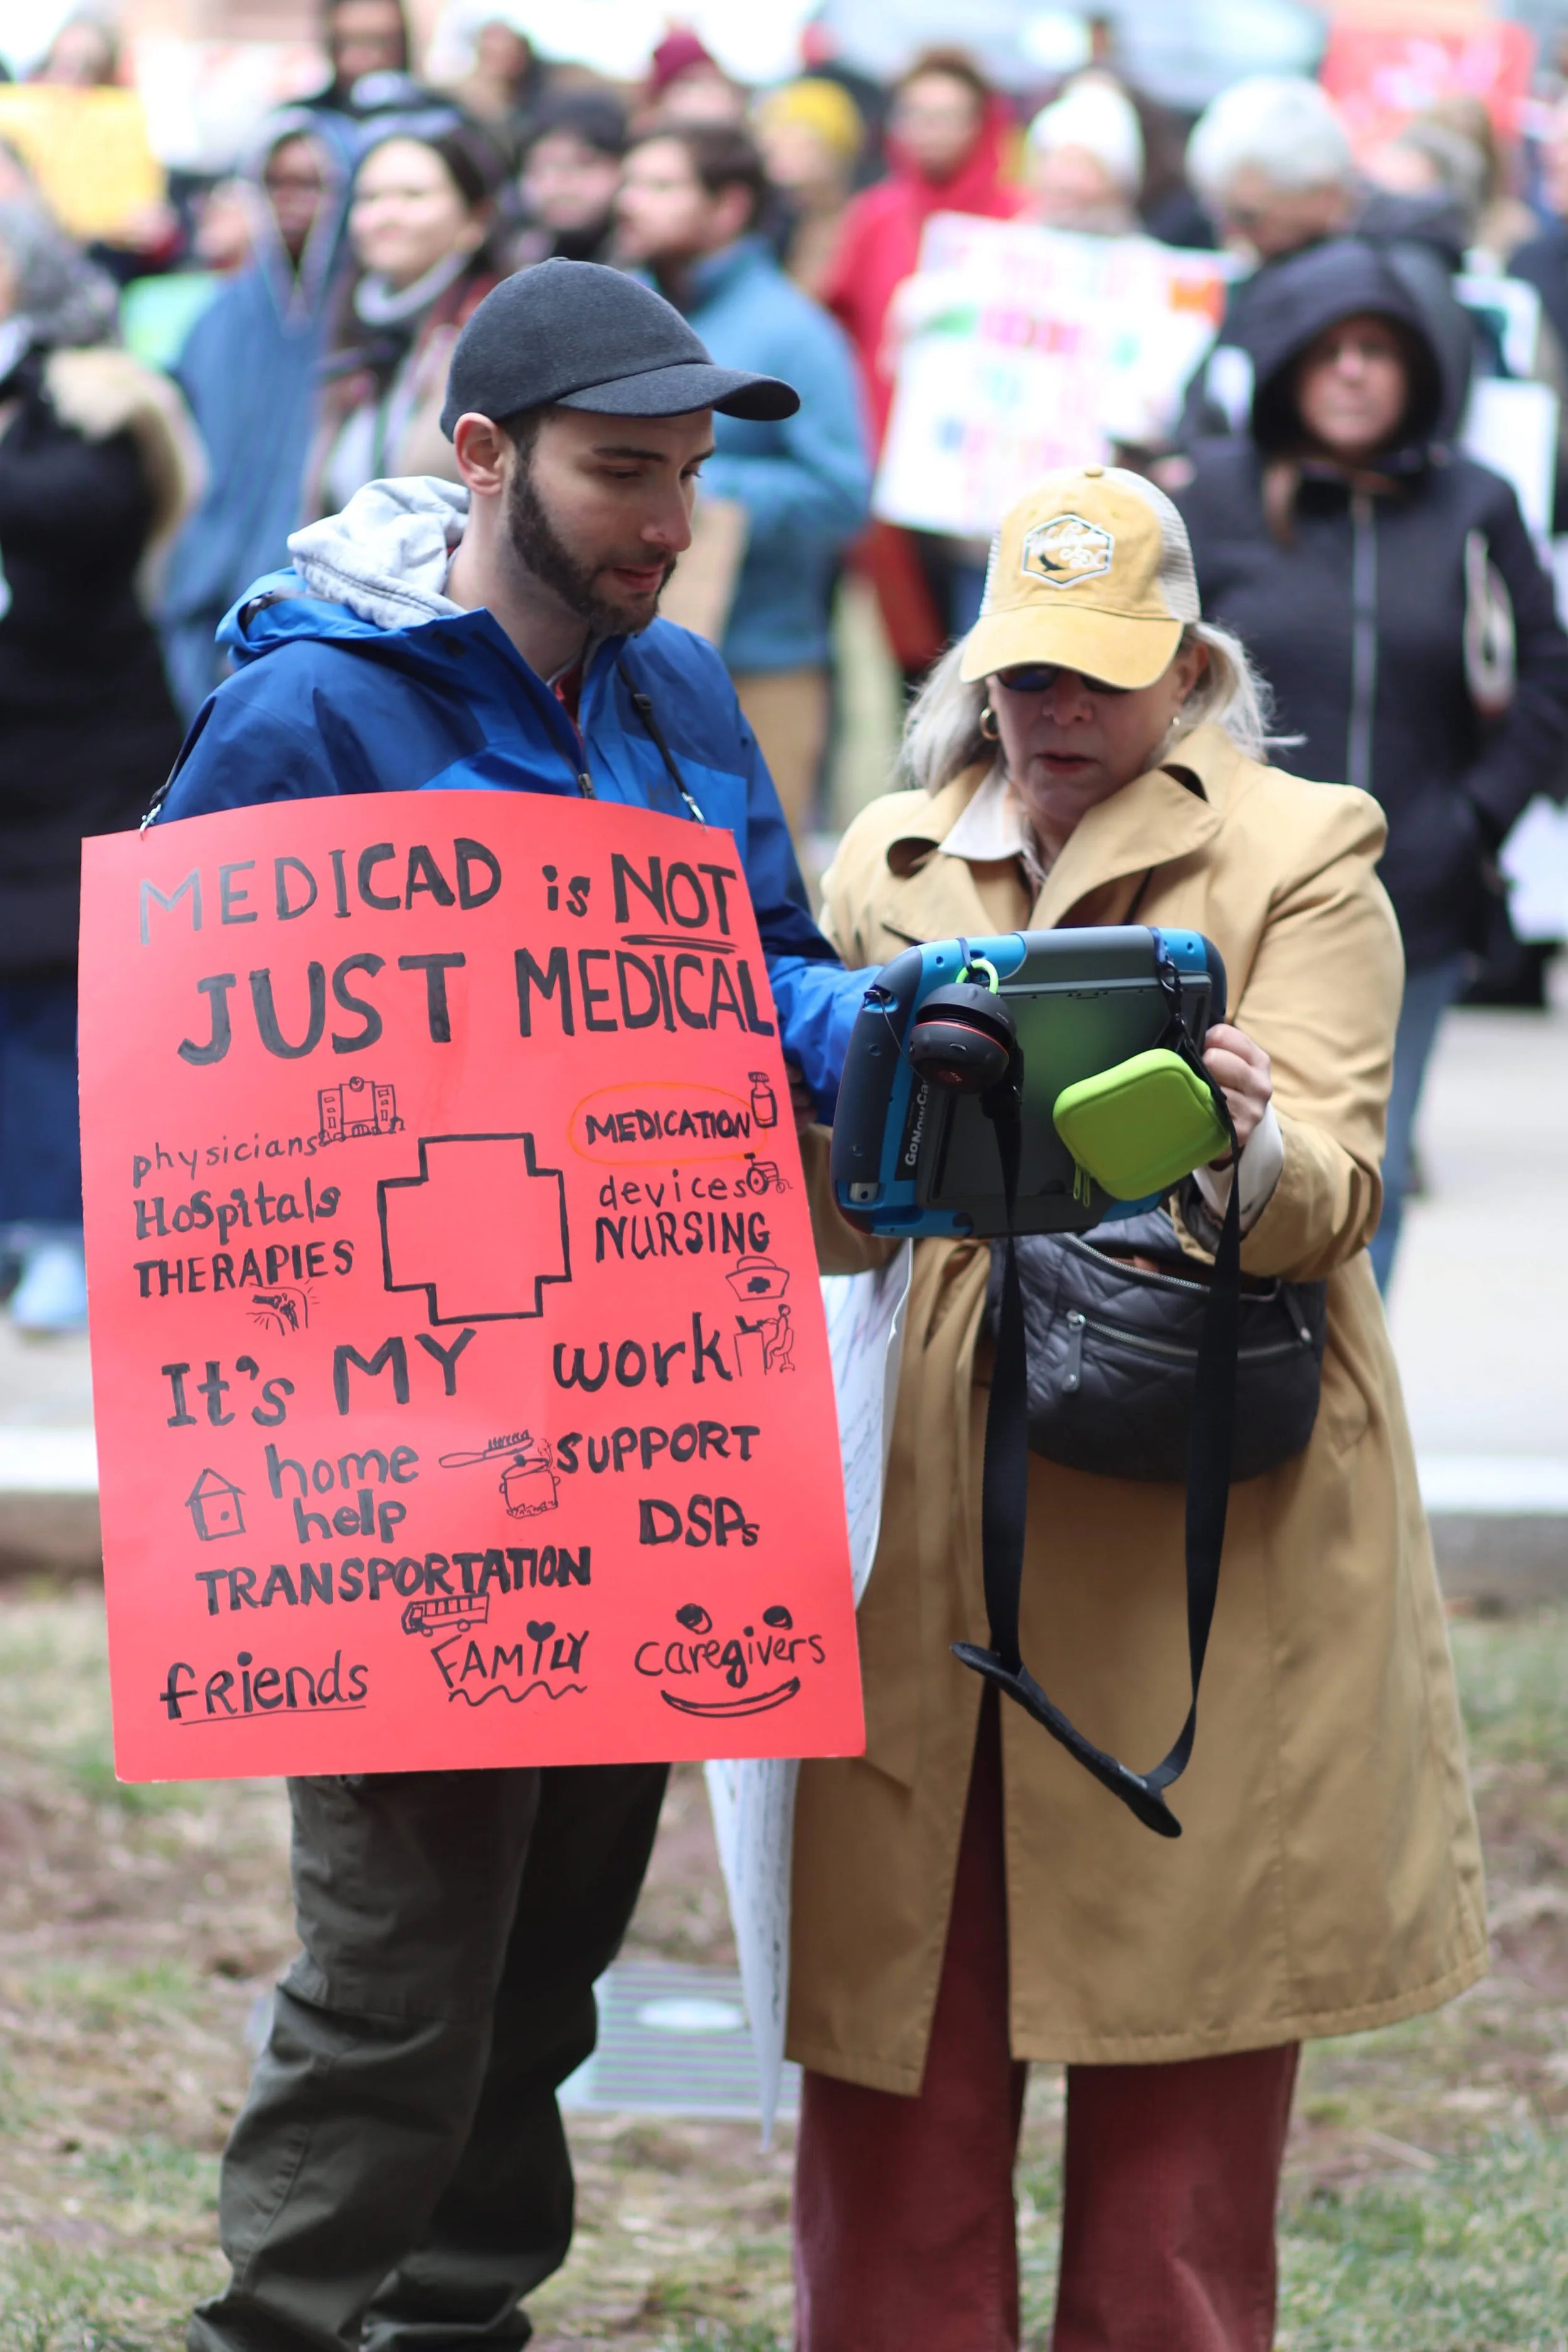 MEDICAD is NOT
JUST MEDICAL
physicians
HOSpitals
THERAPIES
MEDICATION
devices
NURSING
It's MY work
home
help
SUPPORT
DSPs
TRANSPORTATION
friends
FAMiLY
caregivers
GoNowCa